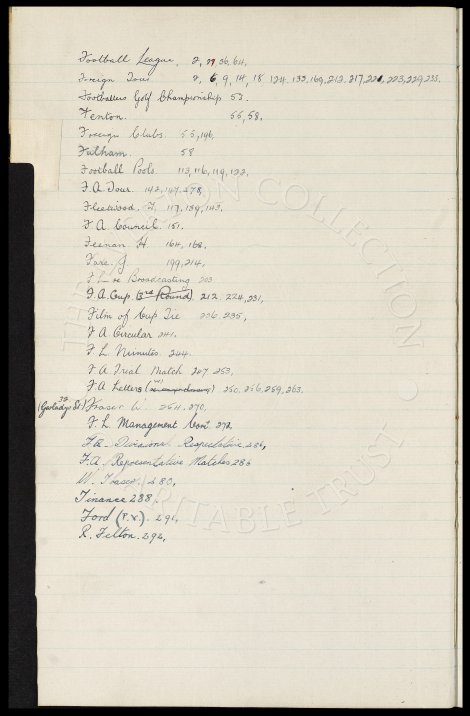 Football League, 2, 29, 36, 64,
Foreign Tour 2, 6, 9, 14, 18, 124, 133, 169, 212, 217, 221, 223, 229, 233.
Footballers Golf Championship 53.
Fenton. 55, 58.
Foreign Clubs. 55, 196.
Fulham. 58
Football Pools. 113, 116, 119, 122,
F.A. Tour. 142, 147, 278,
Fleetwood. T. 117, 139, 143,
F A Council. 151.
Feenan H. 164, 168.
Faxe. J 199, 214,
F L re Broadcasting 203
F.A. Cup (3rd Round) 212. 224, 231,
Film of Cup Tie 226, 235,
F A Circular 241.
F. L. Minutes. 244.
F A Trial Match 247, 253,
F A Letters 250, 256, 259, 263.
Fraser W. 264, 270,
F. L. Management Com. 272.
Divisional 286,
F.A. Representative Matches 286
W. Fraser. 280,
Finance 288,
Ford (P.X). 291,
R. Felton. 292,
THE COLLECTION
CHARITABLE TRUST